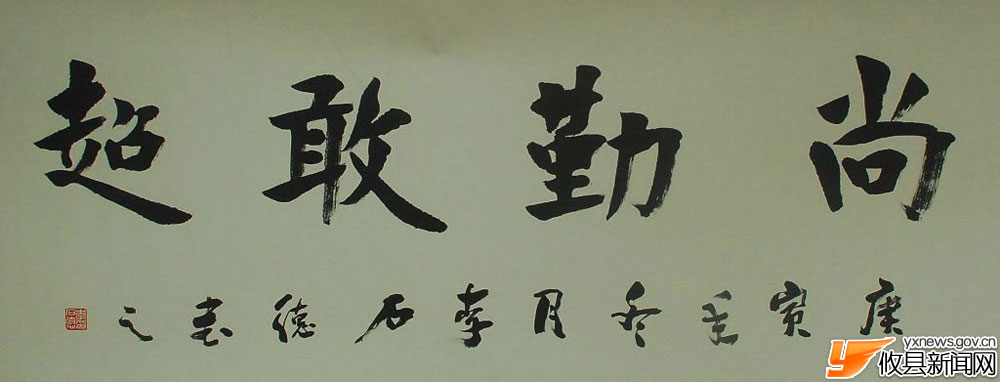 尚勤敢超
庚寅年冬月李石德书之
yxnews.gov.cn
攸县新闻网